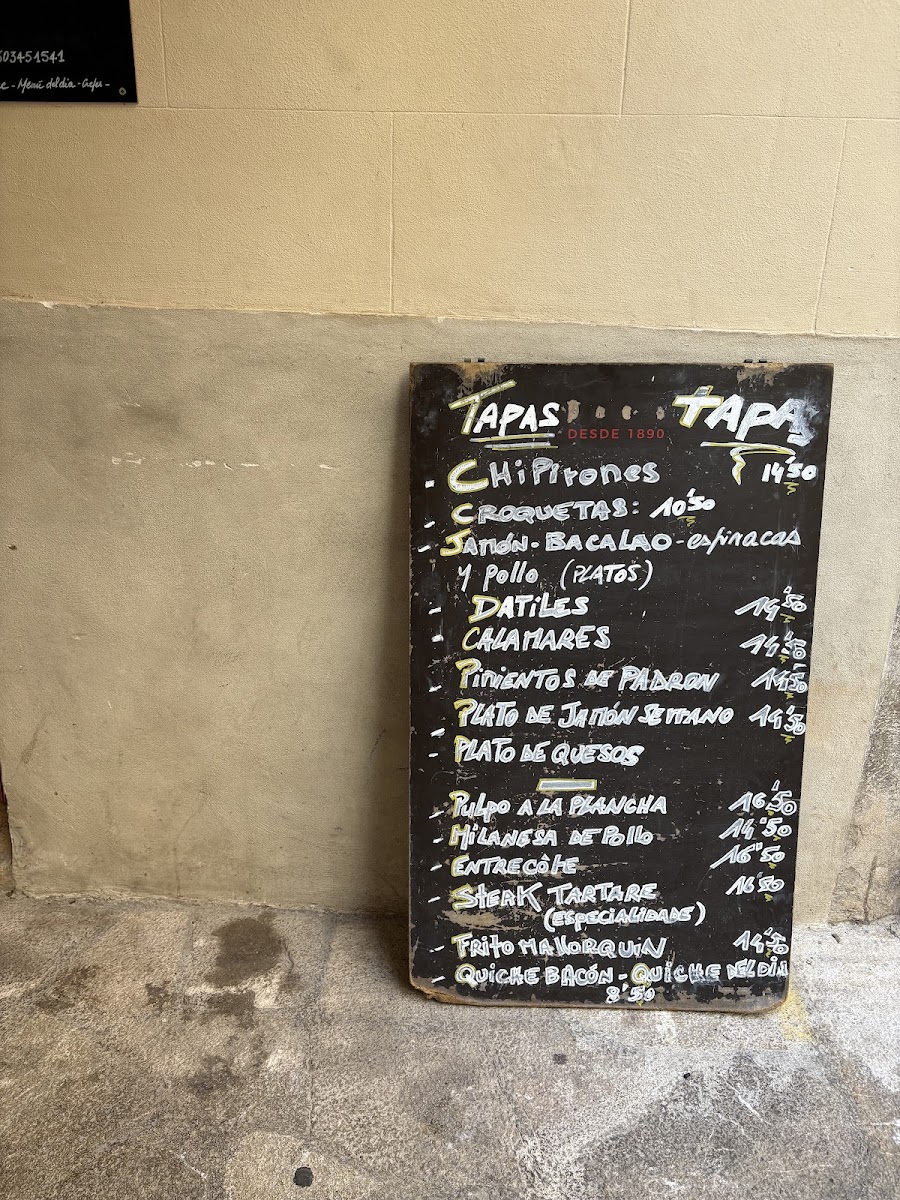 60345-1541
- Menú del dia -
TAPAS TAPAS
DESDE 1890
- CHiPirones 14'50
- CROQUETAS: 10'50
- JAMÓN - BACALAO - espinacas
y pollo (PLATOS)
- DATiLES 14'50
- CALAMARES 14'50
- PiMiENTOS DE PADRON 14'50
- PLATO DE JAMÓN SERRANO 14'50
- PLATO DE QUESOS
- PULPO A LA PLANCHA 16'50
- MiLANESA DE POllO 14'50
- ENTRECÔTE 16'50
- STEAK TARTARE 16'50
(ESPECIALIDADE)
- FRITO MALLORQUIN 14'50
- QUICHE BACÓN - QUICHE DEL DIA
8'50